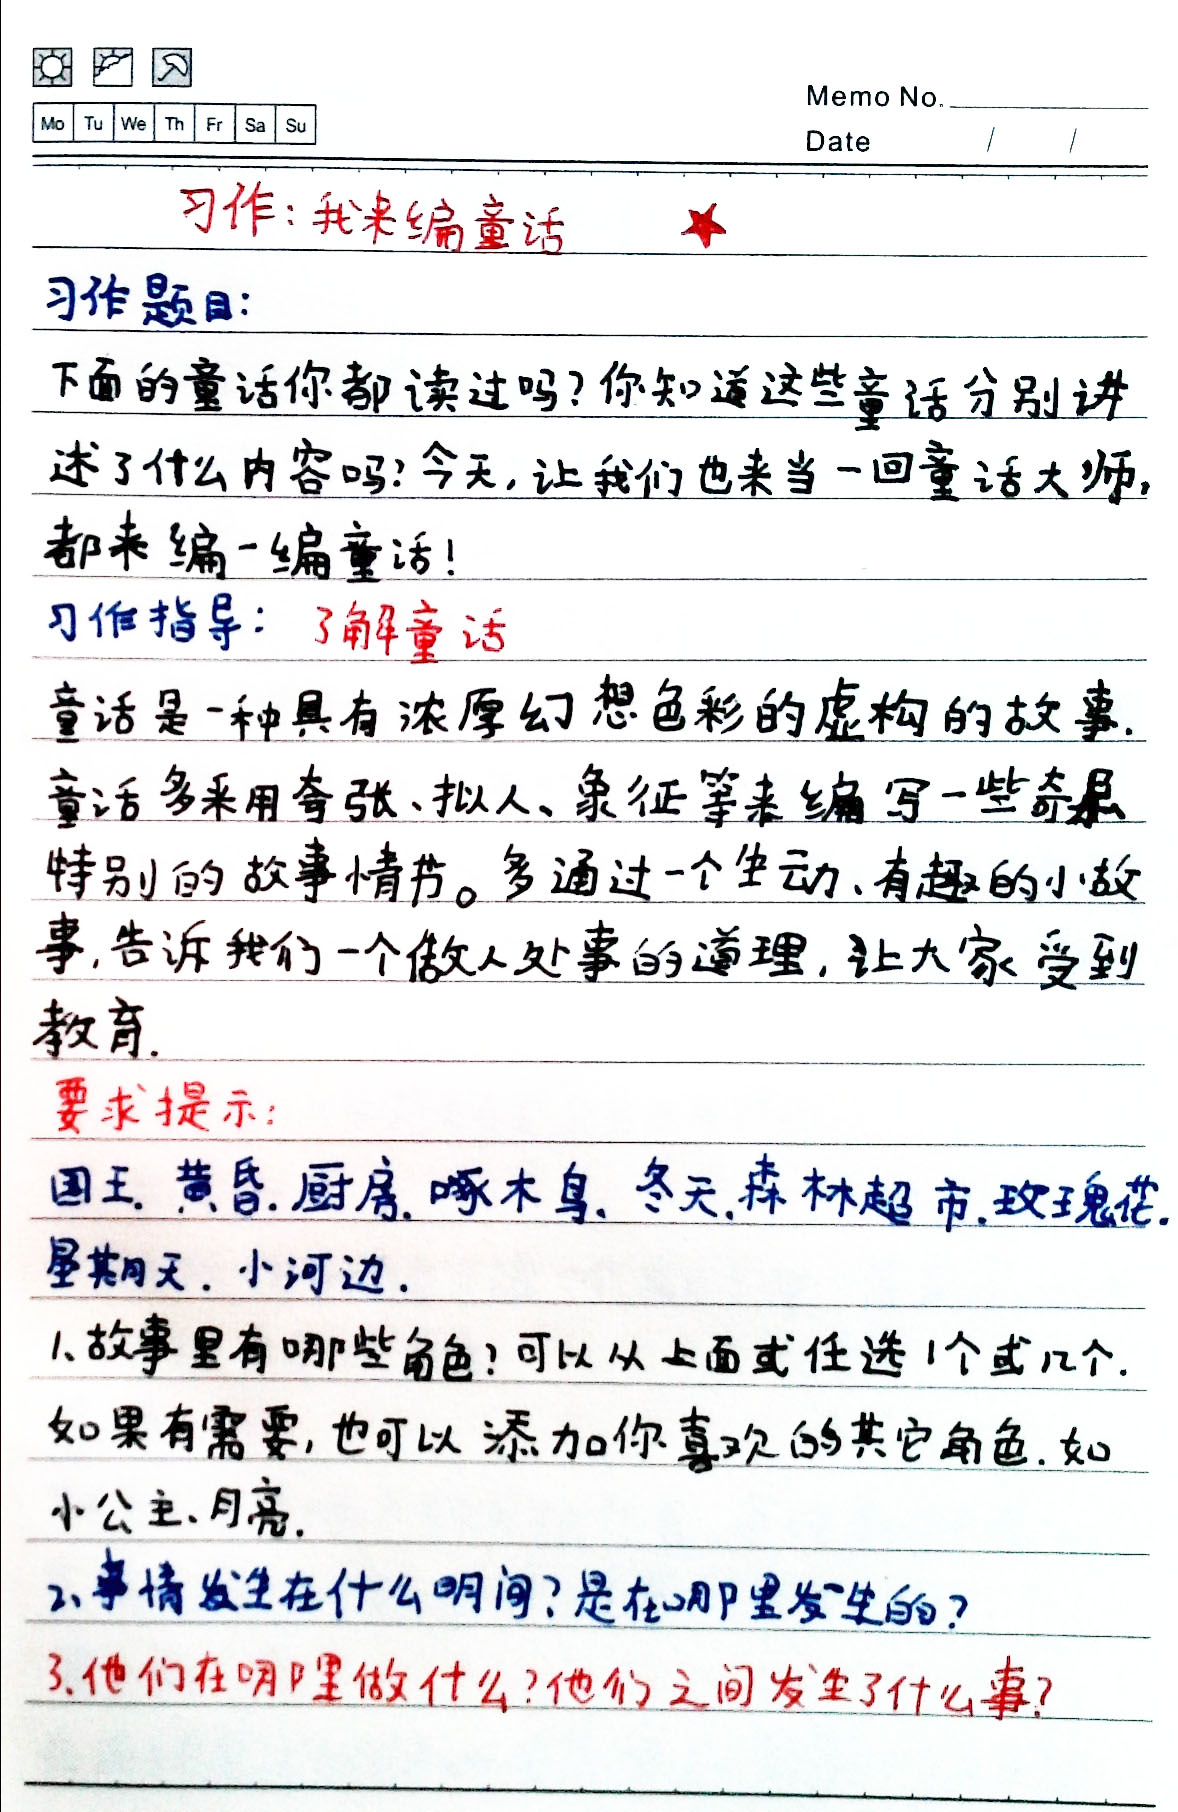 Mo Tu We Th Fr Sa Su
Memo No.
Date / /
习作：我来编童话
习作题目：
下面的童话你都读过吗？你知道这些童话分别讲
述了什么内容吗？今天，让我们也来当一回童话大师，
都来编一编童话！
习作指导： 了解童话
童话是一种具有浓厚幻想色彩的虚构的故事.
童话多采用夸张、拟人、象征等来编写一些奇
特别的故事情节。多通过一个生动、有趣的小故
事，告诉我们一个做人处事的道理，让大家受到
教育.
要求提示：
国王.黄昏.厨房.啄木鸟.冬天.森林超市.玫瑰花.
星期天.小河边.
1、故事里有哪些角色？可以从上面或任选1个或几个.
如果有需要，也可以添加你喜欢的其它角色.如
小公主、月亮.
2、事情发生在什么时间？是在哪里发生的？
3、他们在哪里做什么？他们之间发生了什么事？